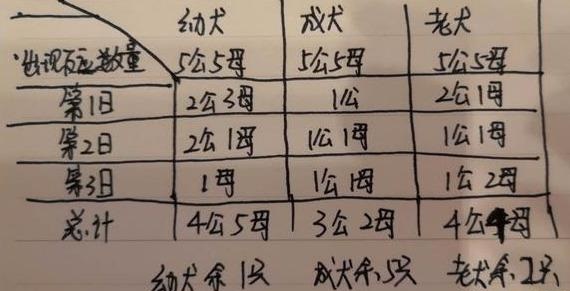 幼犬 成犬 老犬
出现反应数量 5公5母 5公5母 5公5母
第1日 2公3母 1公 2公1母
第2日 2公1母 1公1母 1公1母
第3日 1母 1公1母 1公2母
总计 4公5母 3公2母 4公4母
幼犬余1只 成犬余5只 老犬余2只